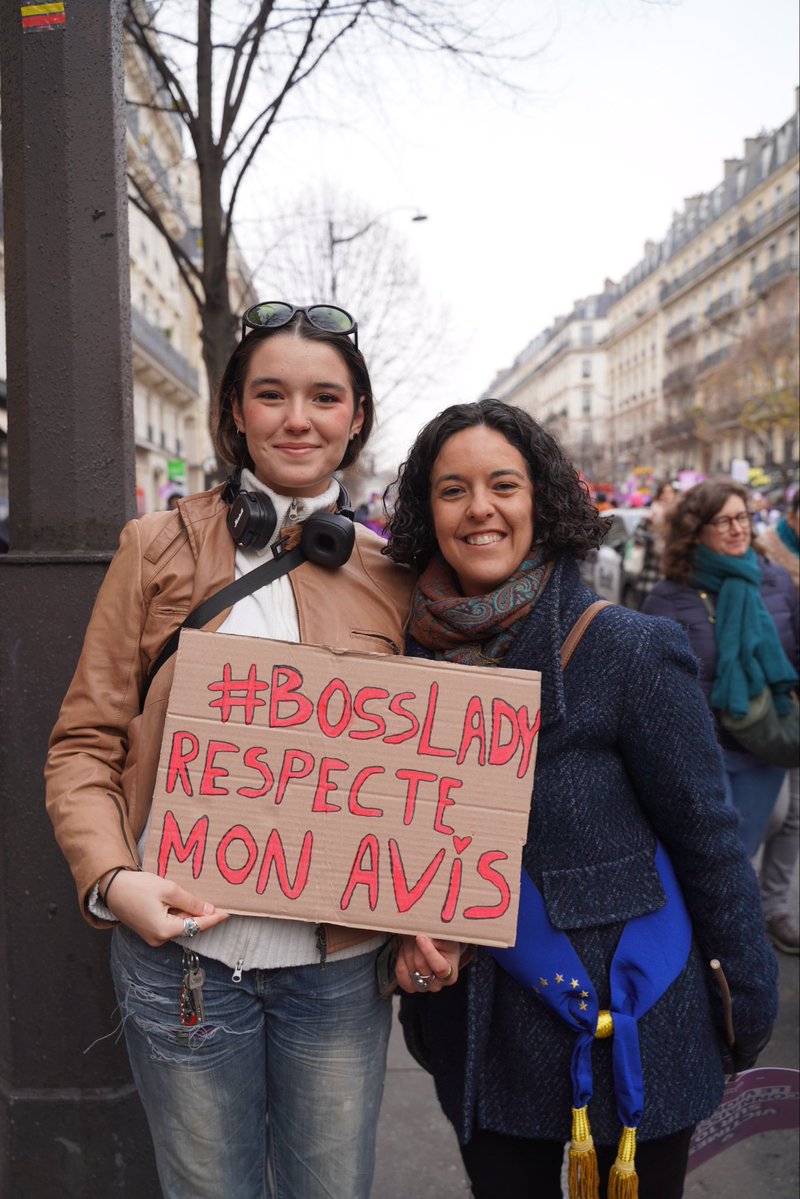 #BOSSLADY
RESPECTE
MON AVIS